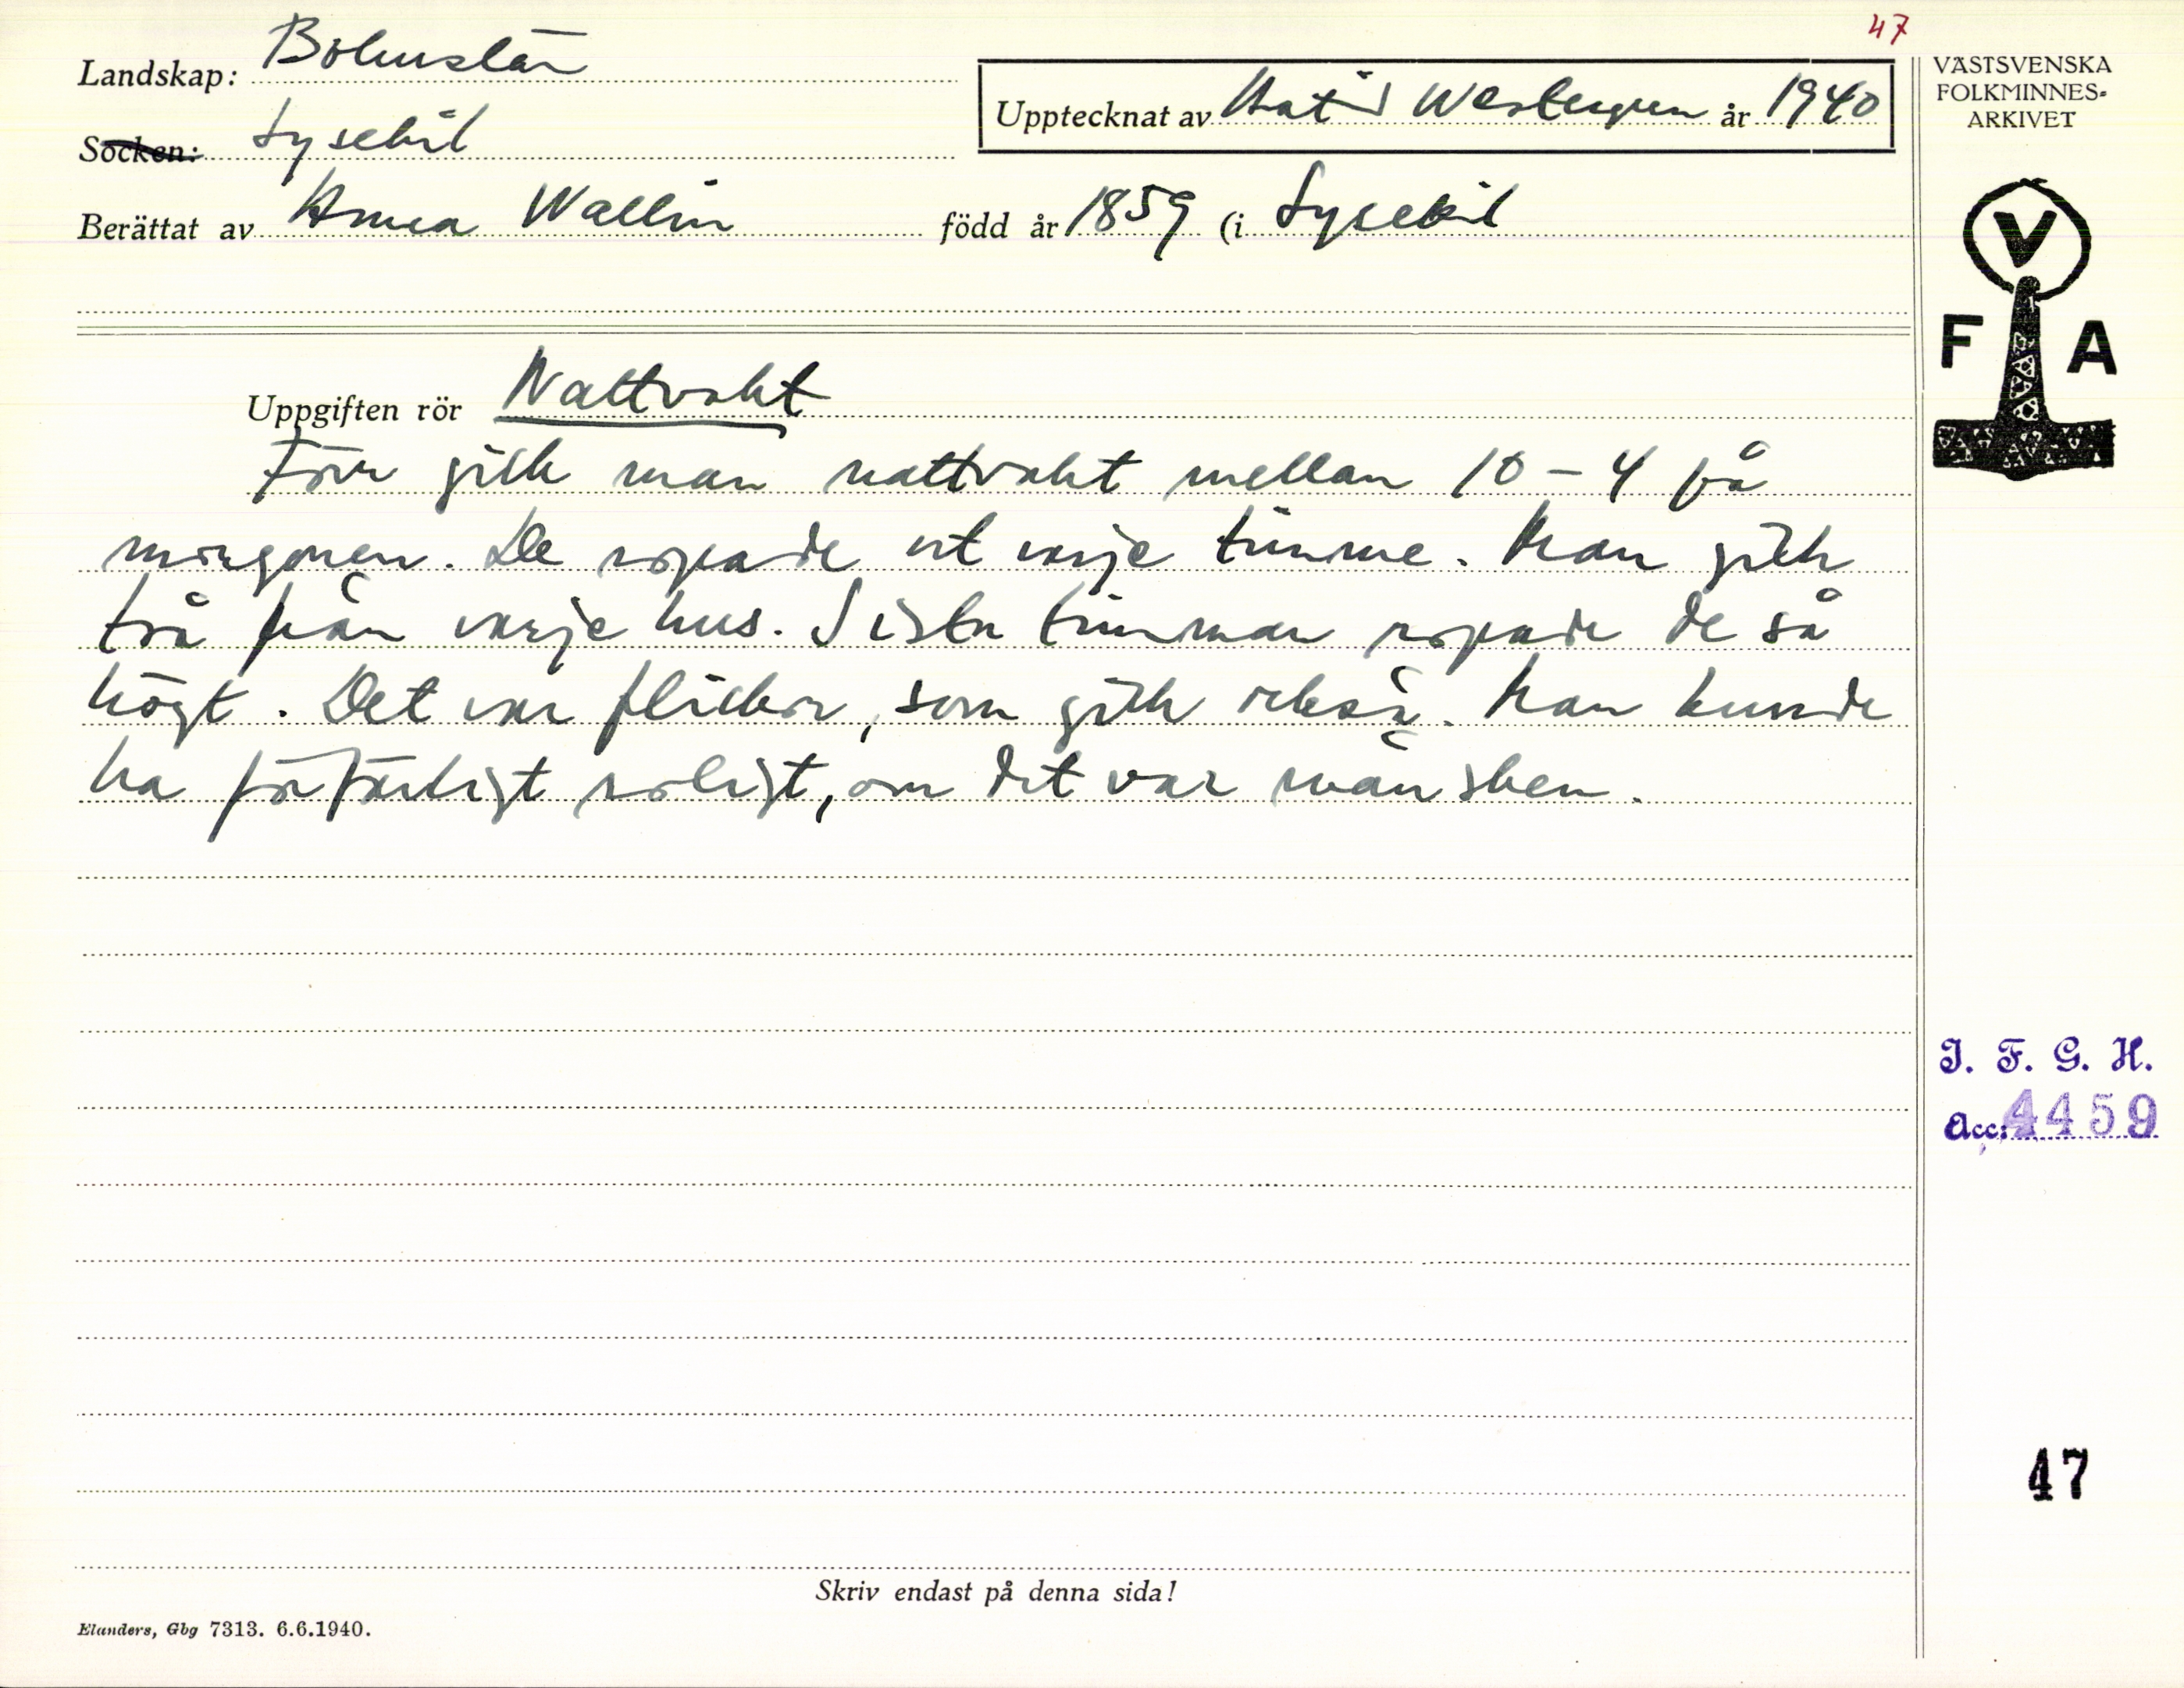 47
Landskap: Bohuslän
Socken: Lysekil
Upptecknat av Westergren år 1940
Berättat av Anna Wallin född år 1859 (i Lysekil
VÄSTSVENSKA
FOLKMINNES-
ARKIVET
V
F A
Uppgiften rör Nattvakt
Förr gick man nattvakt mellan 10 – 4 på
morgonen. De ropade ut varje timme. Man gick
två från varje hus. Sista timman ropade de så
högt. Det var flickor, som gick också. Man kunde
ha förfärligt roligt, om det var månsken.
I. F. G. H.
Acc: 4459
47
Skriv endast på denna sida!
Elanders, Gbg 7313. 6.6.1940.